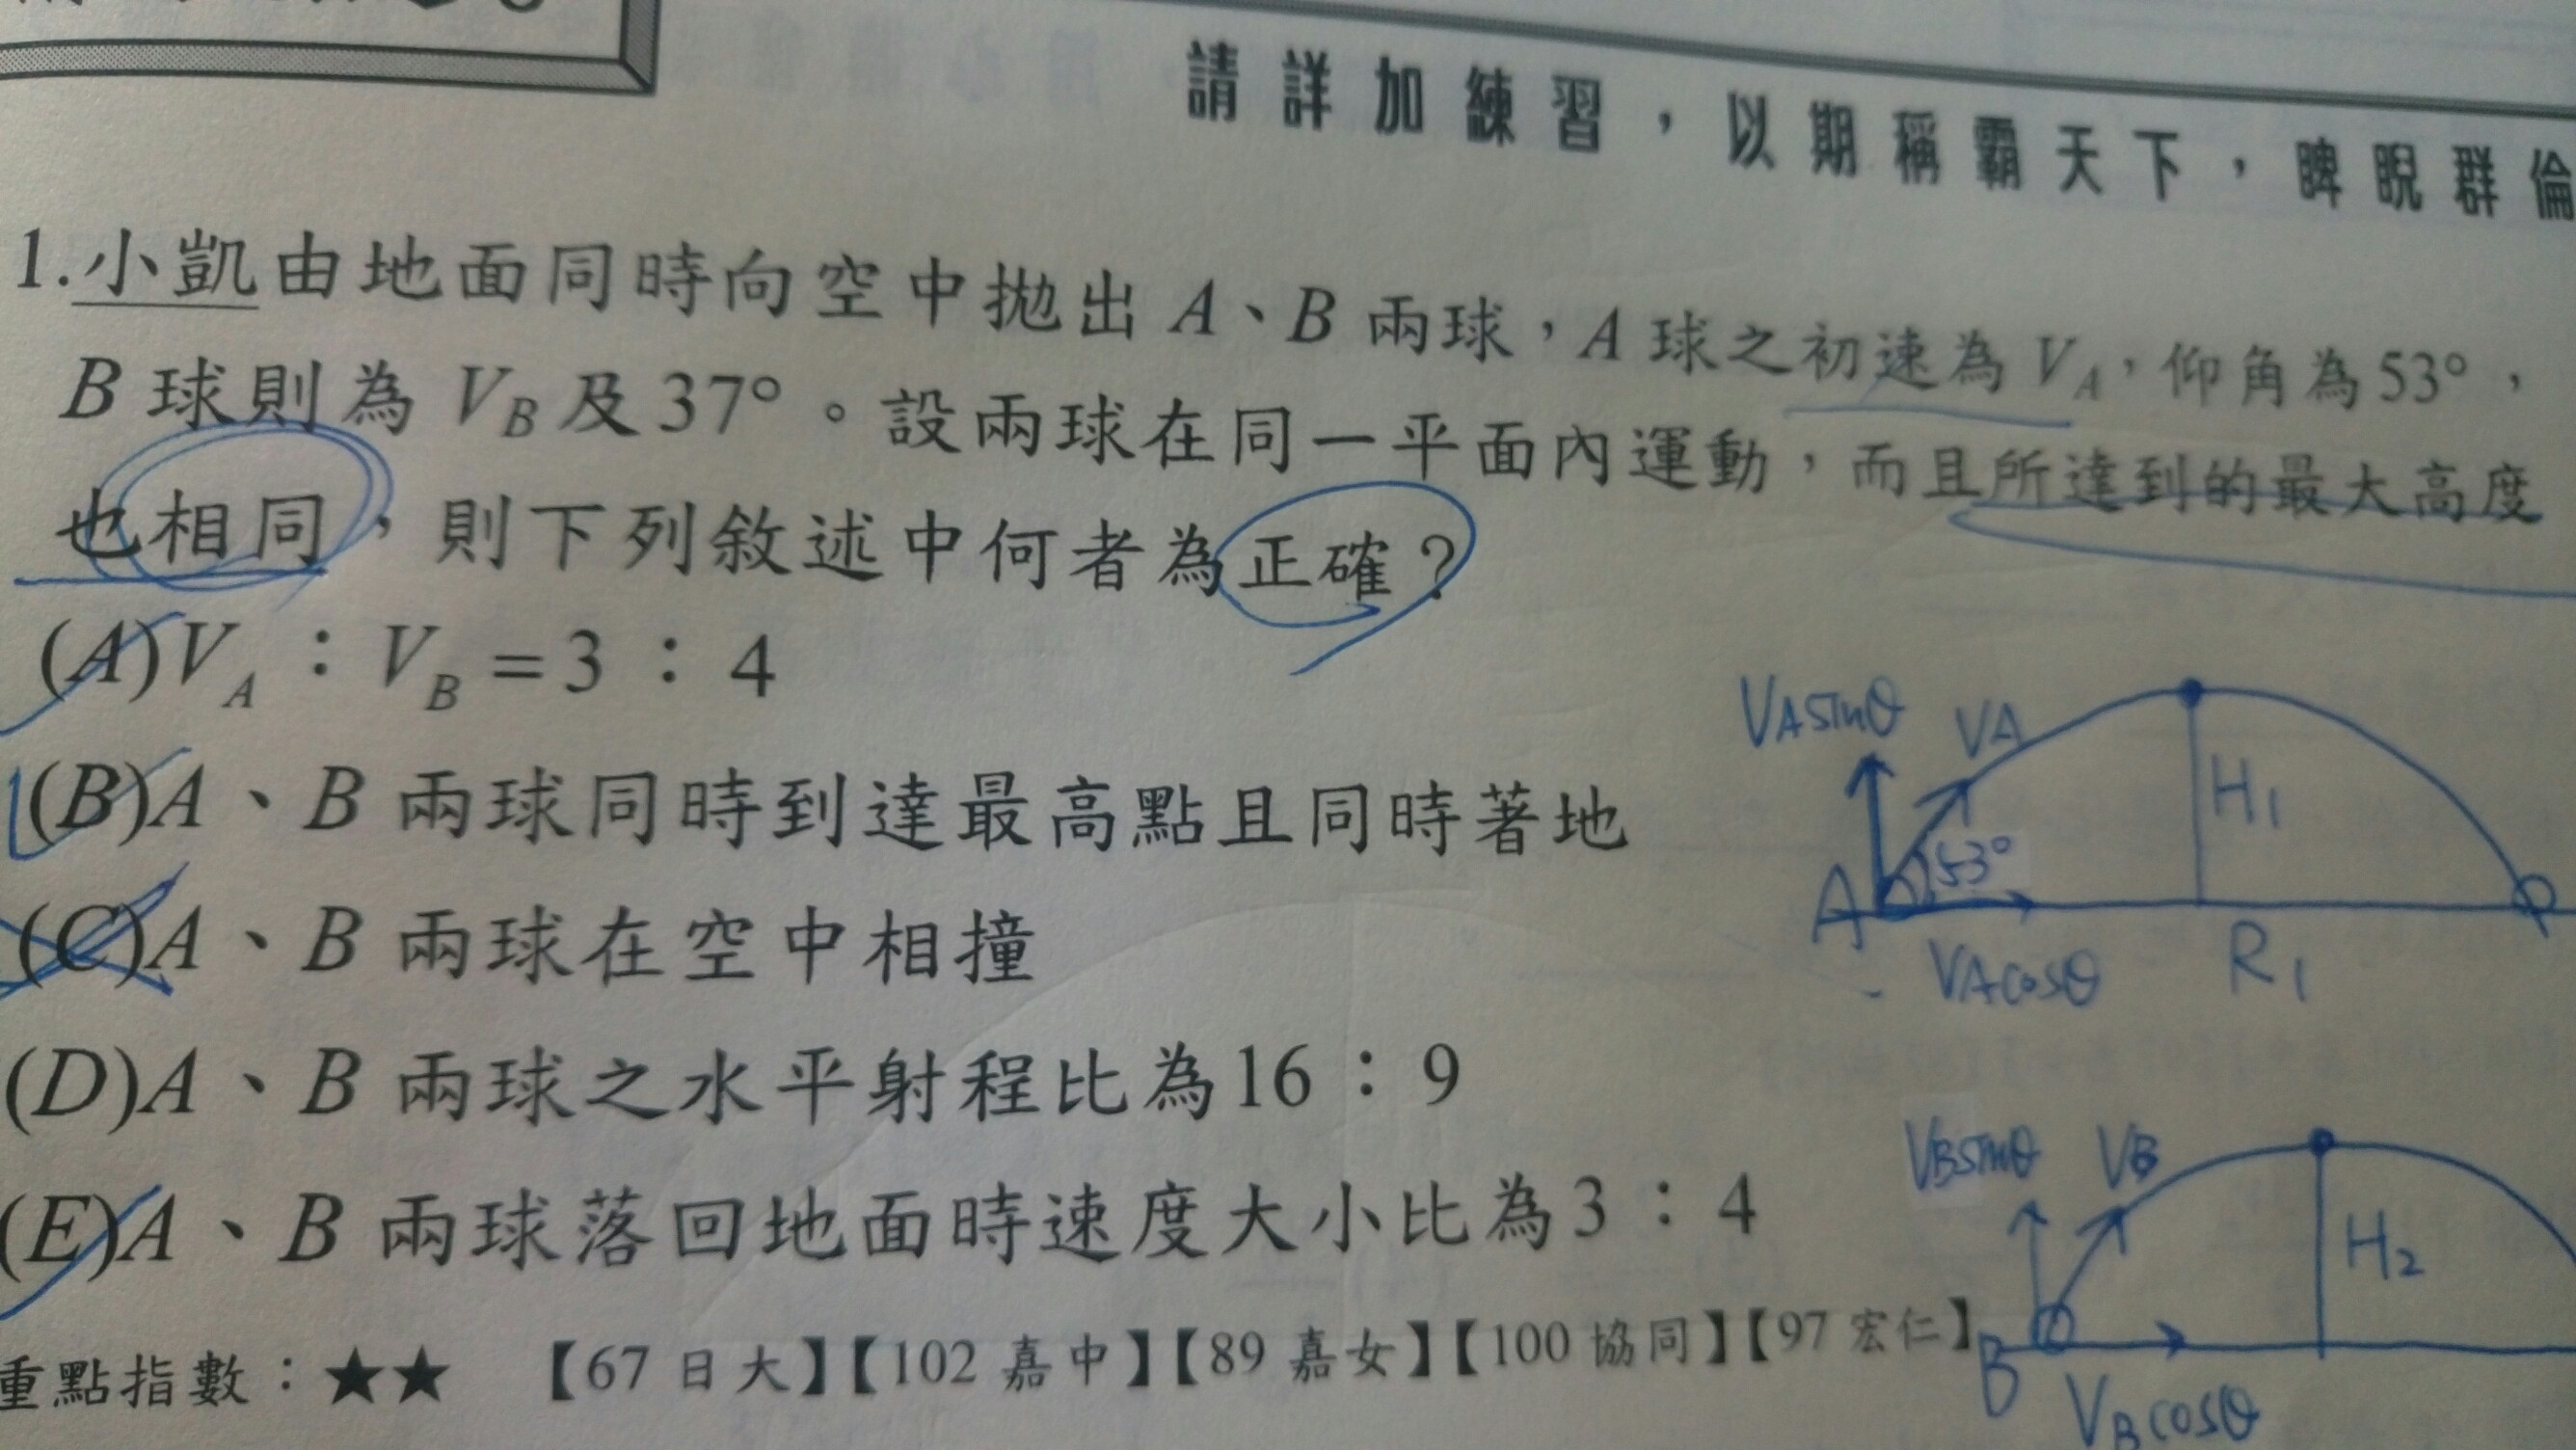 請詳加練習，以期稱霸天下，睥睨群倫
1.小凱由地面同時向空中拋出 A、B 兩球，A 球之初速為 V_A，仰角為53°，
B 球則為 V_B 及37°。設兩球在同一平面內運動，而且所達到的最大高度
也相同，則下列敘述中何者為正確？
(A)V_A：V_B＝3：4
(B)A、B 兩球同時到達最高點且同時著地
(C)A、B 兩球在空中相撞
(D)A、B 兩球之水平射程比為16：9
(E)A、B 兩球落回地面時速度大小比為3：4
重點指數：★★ 【67 日大】【102 嘉中】【89 嘉女】【100 協同】【97 宏仁】
VAsinθ VA
H1
53°
A
VAcosθ R1
VBsinθ VB
H2
B
VBcosθ